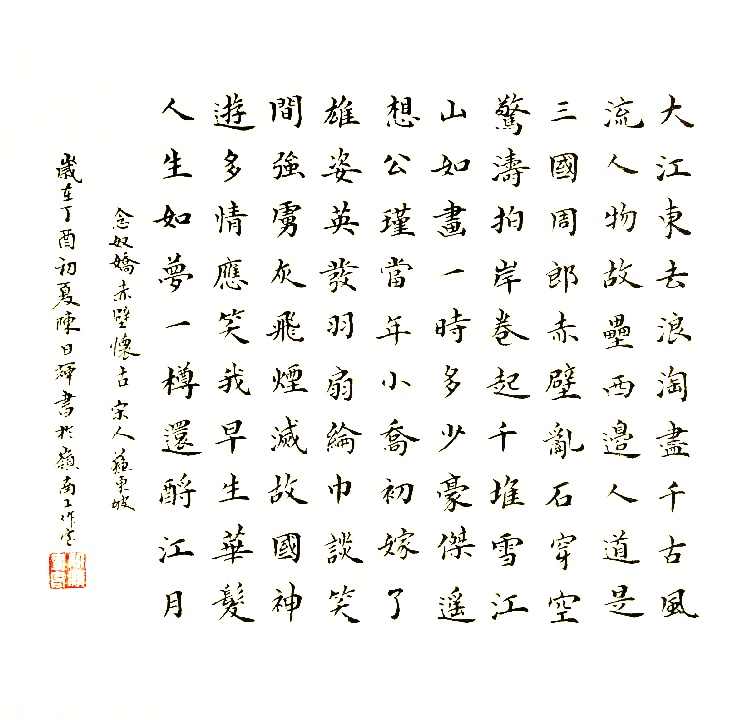 大江東去浪淘盡千古風
流人物故壘西邊人道是
三國周郎赤壁亂石穿空
驚濤拍岸卷起千堆雪江
山如畫一時多少豪傑遙
想公瑾當年小喬初嫁了
雄姿英發羽扇綸巾談笑
間強虜灰飛煙滅故國神
遊多情應笑我早生華髮
人生如夢一樽還酹江月
念奴嬌赤壁懷古 宋人蘇東坡
歲在丁酉初夏陳日輝書於嶺南工作室